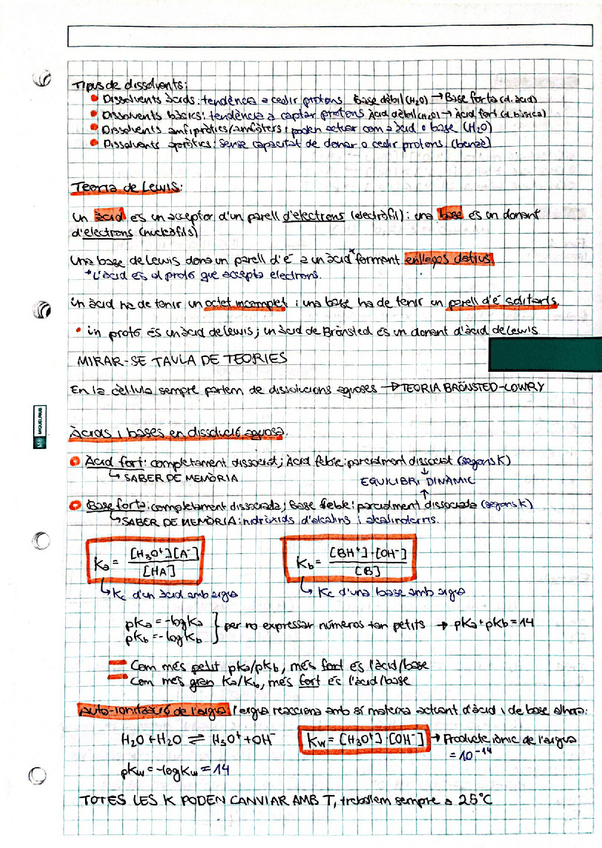 Tipus de dissolvents:
• Dissolvents àcids: tendència a cedir protons Base dèbil (H₂O) → Base forta (d. àcid)
• Dissolvents bàsics: tendència a captar protons Àcid dèbil (H₂O) → Àcid fort (d. bàsica)
• Dissolvents amfipròtics/amfòters: poden actuar com a àcid o base (H₂O)
• Dissolvents apròtics: sense capacitat de donar o cedir protons. (benzè)
Teoria de Lewis:
Un àcid és un acceptor d'un parell d'electrons (electròfil); una base és un donant
d'electrons (nucleòfils)
Una base de Lewis dona un parell d'e⁻ a un àcid* forment enllaços datius.
*L'àcid és el protó que accepta electrons.
Un àcid ha de tenir un octet incomplet i una base ha de tenir un parell d'e⁻ solitaris.
• Un protó és un àcid de Lewis; un àcid de Brönsted és un donant d'àcid de Lewis
MIRAR-SE TAULA DE TEORIES
En la cèl·lula sempre partem de dissolucions aquoses → TEORIA BRÖNSTED-LOWRY
MIQUELRIUS
Àcids i bases en dissolució aquosa.
Àcid fort: completament dissociat; Àcid feble: parcialment dissociat (segons K)
↳ SABER DE MEMÒRIA
EQUILIBRI DINÀMIC
Base forta: completament dissociada; Base feble: parcialment dissociada (segons K)
↳ SABER DE MEMÒRIA: hidròxids d'alcalins i alcalinoterris.
Ka = [H₃O⁺][A⁻] / [HA]
Kb = [BH⁺]·[OH⁻] / [B]
↳ Kc d'un àcid amb aigua
↳ Kc d'una base amb aigua
pKa = -logKa
pKb = -logKb } per no expressar números tan petits → pKa + pKb = 14
Com més petit pKa/pKb, més fort és l'àcid/base
Com més gran Ka/Kb, més fort és l'àcid/base
Auto-ionització de l'aigua: l'aigua reacciona amb sí mateixa actuant d'àcid i de base alhora:
H₂O + H₂O ⇌ H₃O⁺ + OH⁻
Kw = [H₃O⁺]·[OH⁻] → Producte iònic de l'aigua
= 10⁻¹⁴
pKw = -logKw = 14
TOTES LES K PODEN CANVIAR AMB T, treballem sempre a 25°C